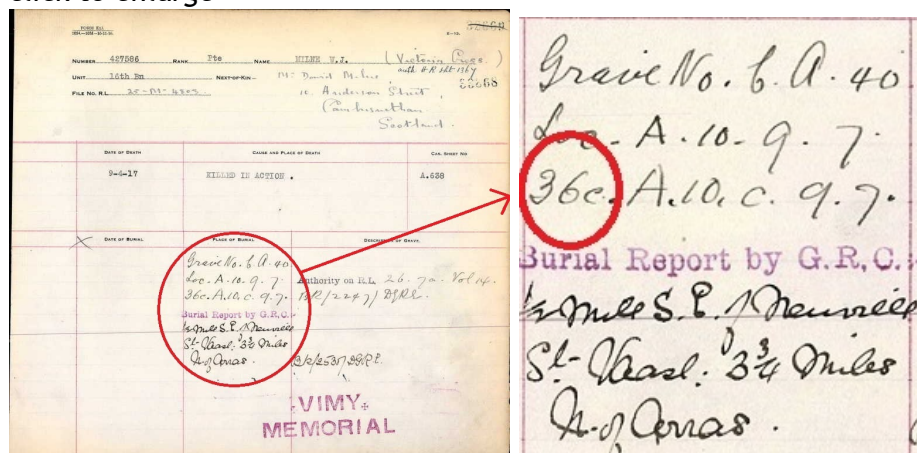 click to enlarge
NUMBER 427586 RANK Pte NAME MILNE W.J. (Victoria Cross)
UNIT 16th Bn NEXT-OF-KIN Mr David Milne,
FILE NO. R.L. 25-M-4503 10. Anderson Street,
Cambusnethan
Scotland.
DATE OF DEATH CAUSE AND PLACE OF DEATH CAS. SHEET NO
9-4-17 KILLED IN ACTION. A.638
DATE OF BURIAL PLACE OF BURIAL DESCRIPTION OF GRAVE.
Grave No. 6. A. 40.
Loc. A.10.9.7. Authority on R.L. 26. 7a. Vol 14.
36c. A.10.c.9.7.
Burial Report by G.R.C.
½ Mile S.E. of Neuville
St- Vaast. 3¾ Miles
N. of Arras.
VIMY
MEMORIAL
Grave No. 6. A. 40
Loc. A.10.9.7.
36c. A.10.c.9.7.
Burial Report by G.R.C.
½ Mile S.E. of Neuville
St- Vaast. 3¾ Miles
N. of Arras.